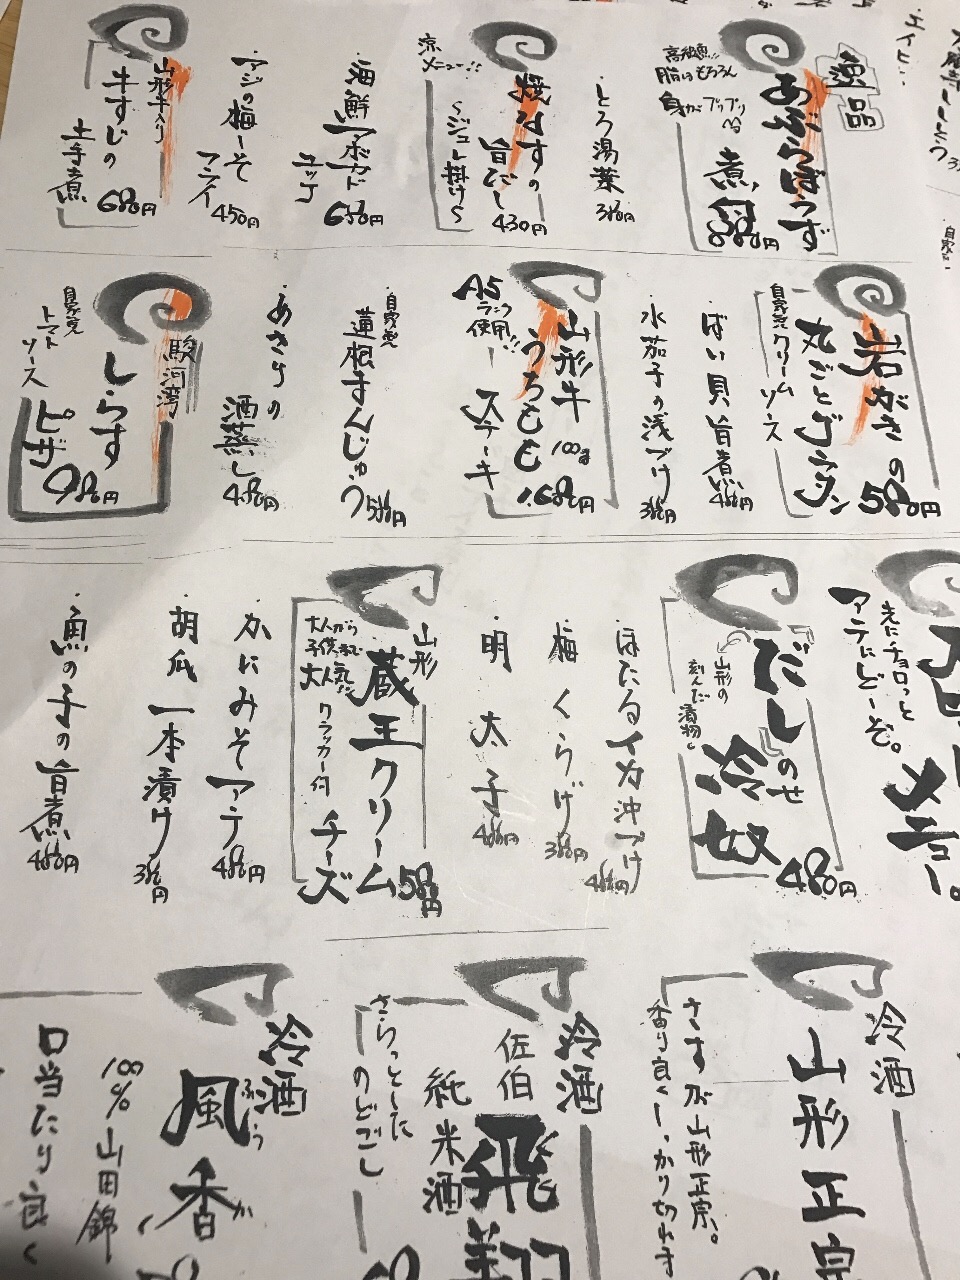 逸品
あぶらぼうず
煮
880円
高級魚!!
脂はもちろん
身がプリプリ
・とろ湯葉
380円
焼なすの
旨だし
430円
〜ジュレ掛け〜
涼メニュー!!
・海鮮アボカド
ユッケ
680円
・アジの梅しそ
フライ
450円
山形牛入り
牛すじの
土手煮
680円
岩がきの
丸ごとグラタン
580円
自家製クリームソース
・ばい貝旨煮
480円
・水茄子の浅づけ
380円
山形牛
うちもも
100g
ステーキ
1.680円
A5
ランク
使用!!
・自家製
蓮根まんじゅう
580円
・あさりの
酒蒸し
480円
駿河湾
しらす
ピザ
980円
自家製
トマト
ソース
先にチョロっと
アテにどーぞ。
だしのせ
冷奴
480円
山形の
刻んだ漬物
・ほたるイカ沖づけ
480円
・梅くらげ
380円
・明太子
480円
山形
蔵王クリーム
チーズ
580円
クラッカー付
大人から
子供まで
大人気!!
・かにみそアテ
480円
・胡瓜一本漬け
380円
・魚の子の旨煮
480円
冷酒
山形正宗
さすが山形正宗。
香り良くしっかり切れま
冷酒
佐伯
飛翔
純米酒
さらっとした
のどごし
冷酒
風香
ふう
が
100%山田錦
口当たり良く